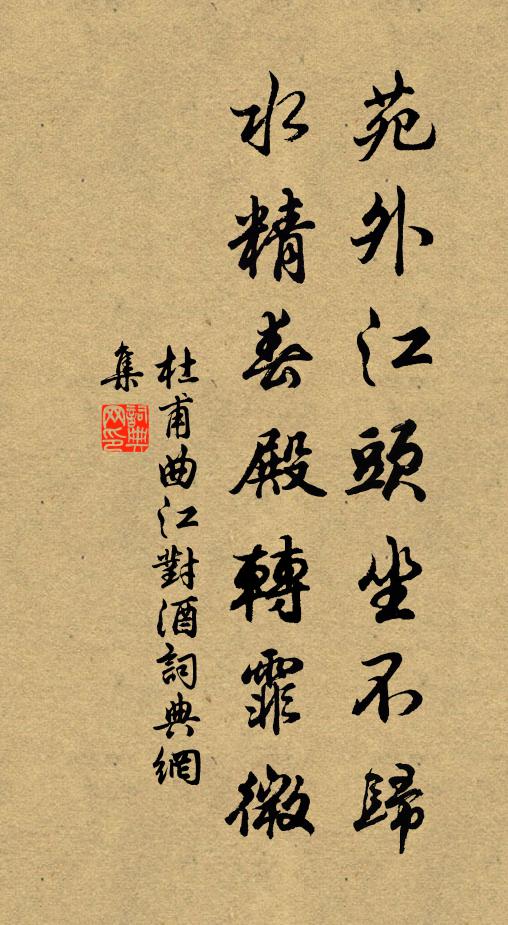 苑外江頭坐不歸
水精春殿轉霏微
杜甫曲江對酒詞典網
集
詞典網印